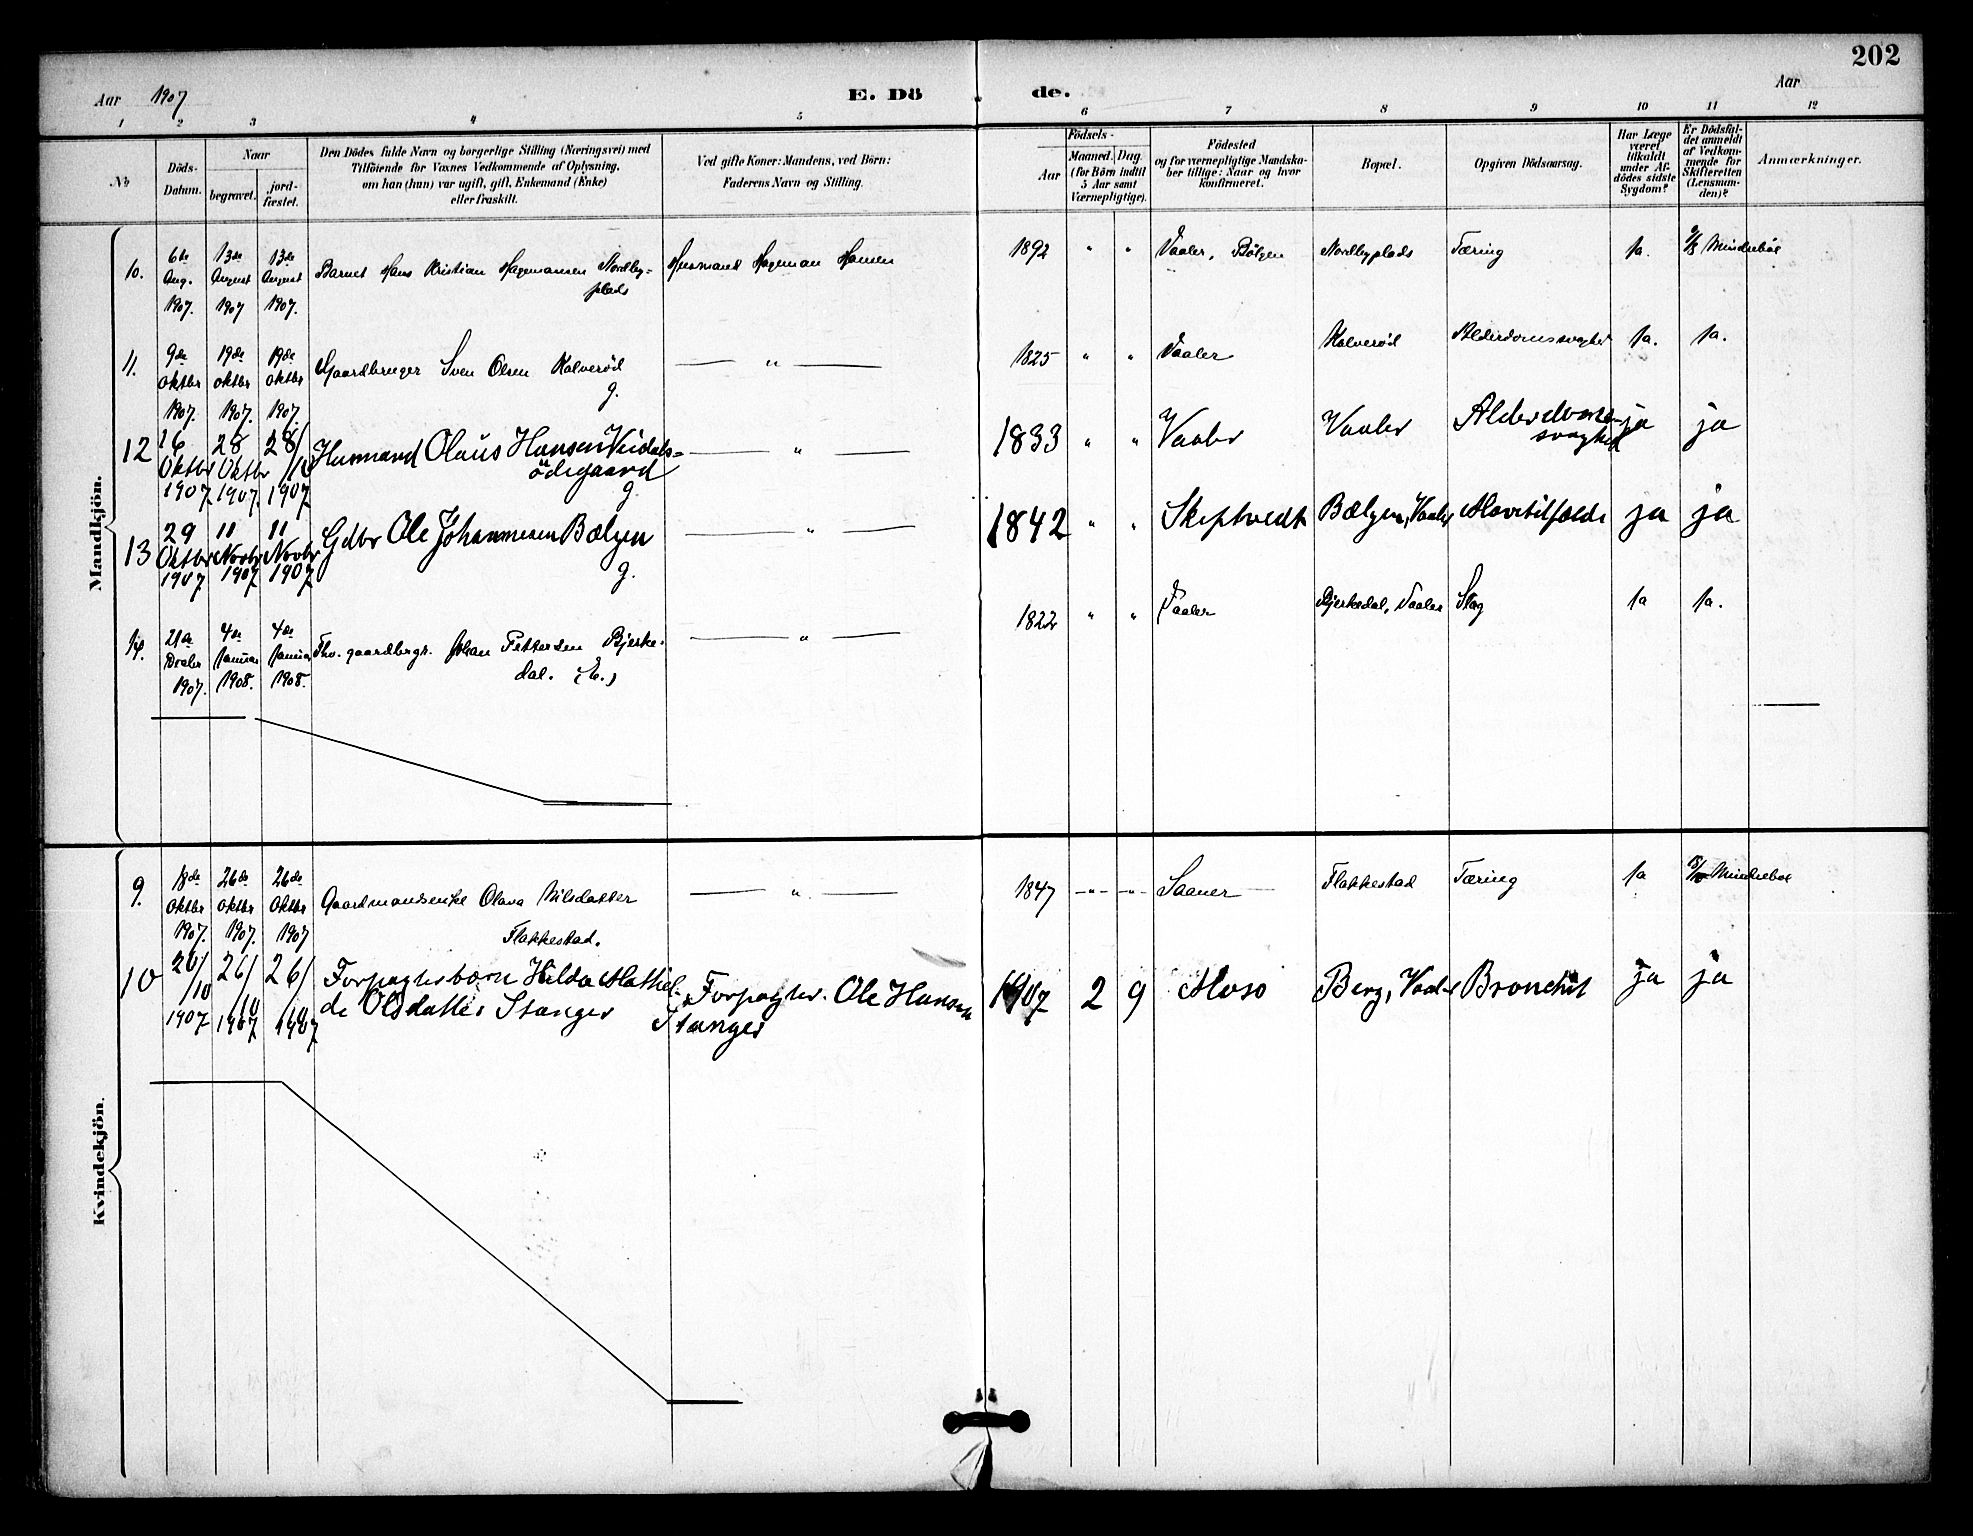 202
Aar 1907
E. Dö
de.
Aar
1 2 3 4 5 6 7 8 9 10 11 12
No
Döds-
Datum.
Naar
begravet.
jord-
fæstet.
Den Dödes fulde Navn og borgerlige Stilling (Næringsvei) med
Tilföiende for Voxnes Vedkommende af Oplysning,
om han (hun) var ugift, gift, Enkemand (Enke)
eller fraskilt.
Ved gifte Koner: Mandens, ved Börn:
Faderens Navn og Stilling.
Födsels-
Aar
Maaned. Dag.
(for Börn indtil
5 Aar samt
Værnepligtige).
Födested
og for værnepligtige Mandska-
ber tillige: Naar og hvor
konfirmeret.
Bopæl.
Opgiven Dödsaarsag.
Har Læge
været
tilkaldt
under Af-
dödes sidste
Sygdom?
Er Dödsfal-
det anmeldt
af Vedkom-
mende for
Skifteretten
(Lensman-
den)?
Anmærkninger.
Mandkjön.
10. 6te Aug. 1907. 13de August 1907 13de August 1907. Barnet Hans Kristian Hagemansen Nordby=
plads
Husmand Hageman Hansen 1892 " " Vaaler, Bölgen Nordbyplads Tæring Ja. Mindreböe
11. 9de Oktbr 1907. 19de Oktbr 1907. 19de Oktbr 1907. Gaardbruger Sven Olsen Kalveröd
g.
" 1825 " " Vaaler Kalveröd Alderdomssvaghed Ja. Ja.
12 16 Oktbr 1907. 28 Oktbr 1907. 28/10 1907 Husmand Olaus Hansen Veidals=
ödegaard
g.
" 1833 " " Vaaler Vaaler Alderdoms-
svaghed
ja ja
13 29 Oktbr 1907 11 Novbr 1907 11 Novbr 1907 Gdbr Ole Johannesen Bælgen
g.
" 1842 " " Skiptvedt Bælgen, Vaaler Slavetilfælde ja ja
14. 21de Decbr 1907. 4de Januar 1908. 4de Januar 1908. Fhv. gaardbrgr. Johan Pettersen Bjerke-
dal. (E.)
" 1822 " " Vaaler Bjerkedal, Vaaler Slag Ja Ja.
Kvindekjön.
9. 18de Oktbr 1907. 26de Oktbr 1907. 26de Oktbr 1907 Gaardmandsenke Olava Nilsdatter
Flakkestad.
" 1847 -"- -"- Saaner Flakkestad Tæring Ja Mindreboe
10 20/10 1907 26/10 1907 26/10 1907 Forpagtersbarn Hilda Mathil-
de Olsdatter Stanger
Forpagter Ole Hansen
Stanger
1907 2 9 Moss Berg, Vaaler Bronchit ja ja